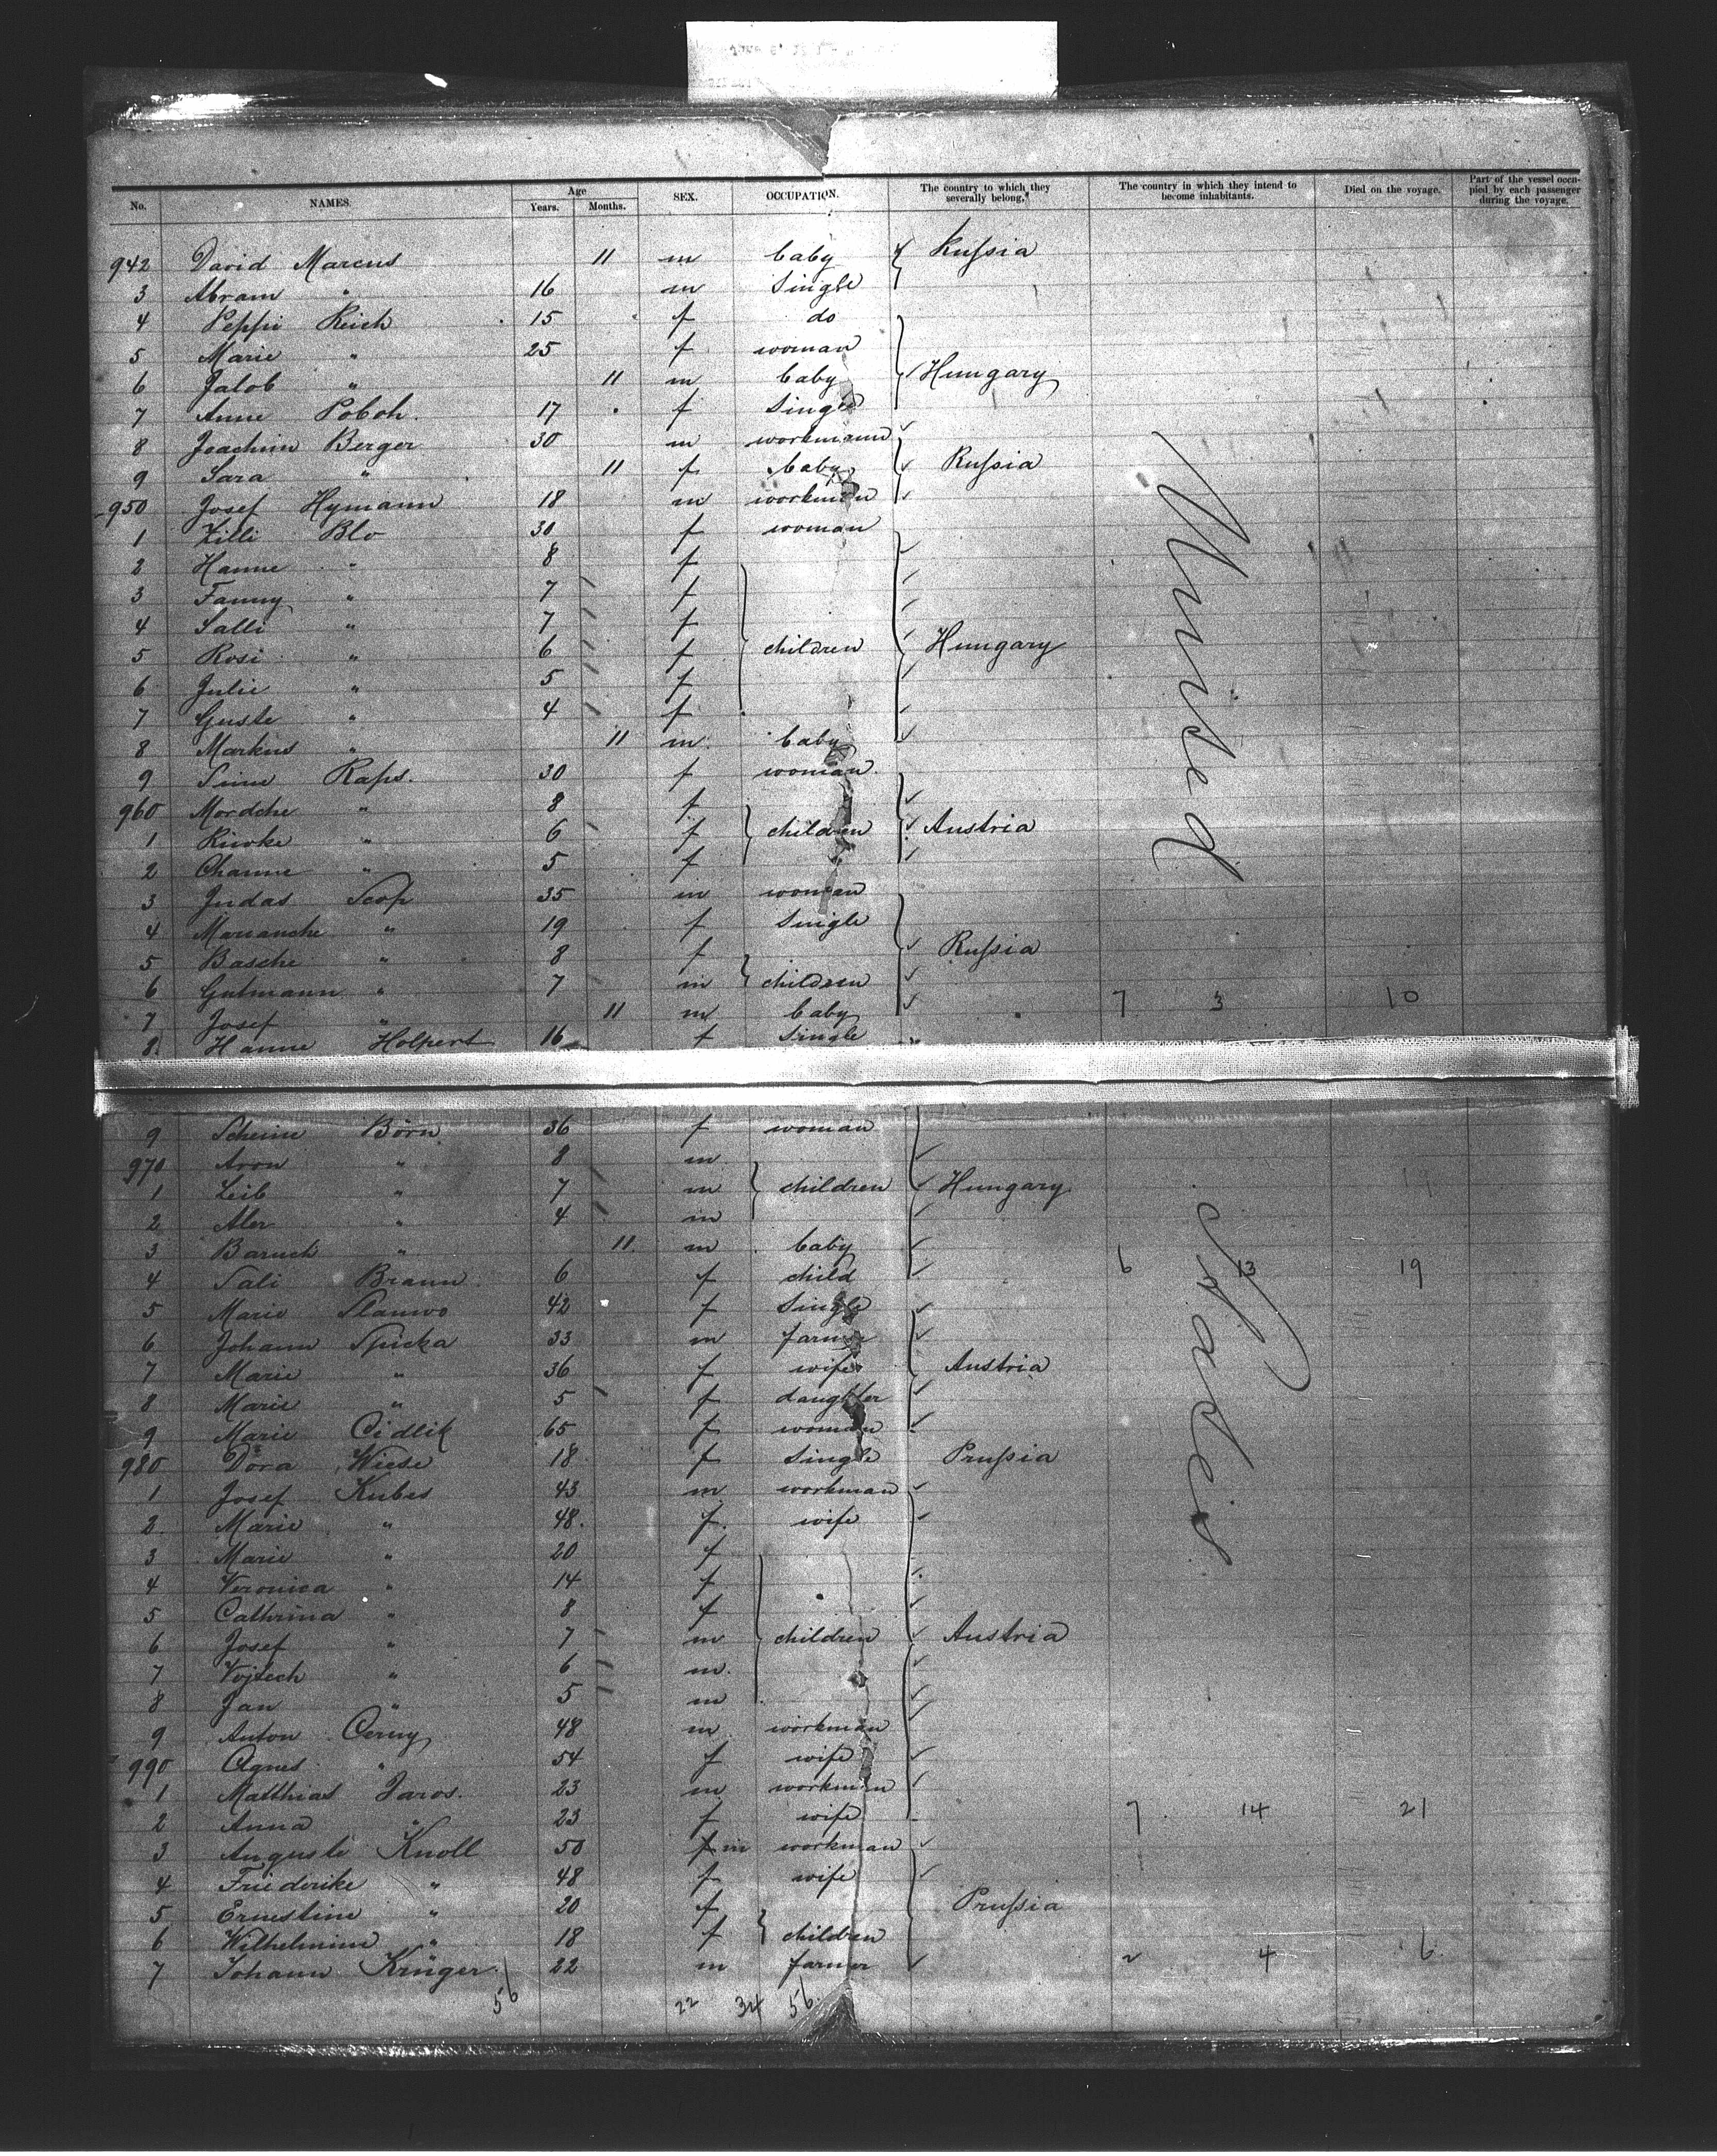 No. NAMES. Age Years. Months. SEX. OCCUPATION. The country to which they severally belong.* The country in which they intend to become inhabitants. Died on the voyage. Part of the vessel occupied by each passenger during the voyage.
942 David Marcus 11 m baby Russia
3 Abram " 16 m Single
4 Peppi Reich 15 f do
5 Marie " 25 f woman
6 Jakob " 11 m baby Hungary
7 Anne Poboh. 17 f Single
8 Joachim Berger 30 m workmann
9 Sara " 11 f baby Russia
950 Josef Hymann 18 m workman
1 Zilli Blo 30 f woman
2 Hanne " 8 f
3 Fanny " 7 f
4 Salli " 7 f
5 Rosi " 6 f children Hungary
6 Julie " 5 f
7 Guste " 4 f
8 Markus " 11 m baby
9 Raps. 30 f woman
960 Mordche " 8 f
1 Riwke " 6 f children Austria
2 Channe " 5 f
3 Judas Scop 35 m woman
4 Marianche " 19 f Single
5 Basche " 8 f Russia
6 Gutmann " 7 m children
7 Josef " 11 m baby 7 3 10
8. Hanne Holpert 16 f Single
United States
9 Scheim Born 36 f woman
970 Aron " 8 m
1 Leib " 7 m children Hungary
2 Aler " 4 m
3 Baruch " 11. m baby
4 Sali Braun 6 f child 6 13 19
5 Marie Slanwo 42 f Single
6 Johann Spicka 33 m farmer
7 Marie " 36 f wife Austria
8 Marie " 5 f daughter
9 Marie Cidlik 65 f woman
980 Dora Wiese 18 f Single Prussia
1 Josef Kubes 43 m workman
2. Marie " 48. f. wife
3 Marie " 20 f
4 Veronica " 14 f
5 Cathrina " 8 f
6 Josef " 7 m children Austria
7 Vojtech " 6 m.
8 Jan " 5 m
9 Anton Cerny 48 m workman
990 Agnes " 54 f wife
1 Matthias Jaros. 23 m workman
2 Anna " 23 f wife 7 14 21
3 Auguste Knoll 50 f m workman
4 Friederike " 48 f wife
5 Ernestine " 20 f Prussia
6 Wilhelmine " 18 f children
7 Johann Krüger 22 m farmer 2 4 6
56 22 34 56